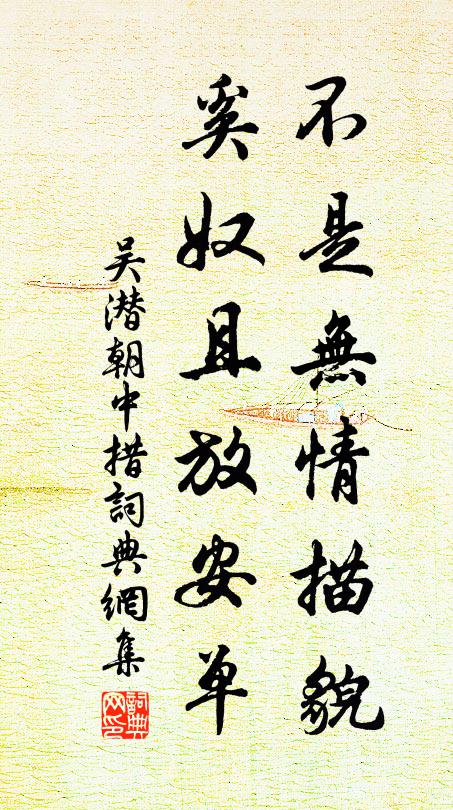 不是無情描貌
奚奴且放安单
吴潜朝中措詞典網集
詞典网印